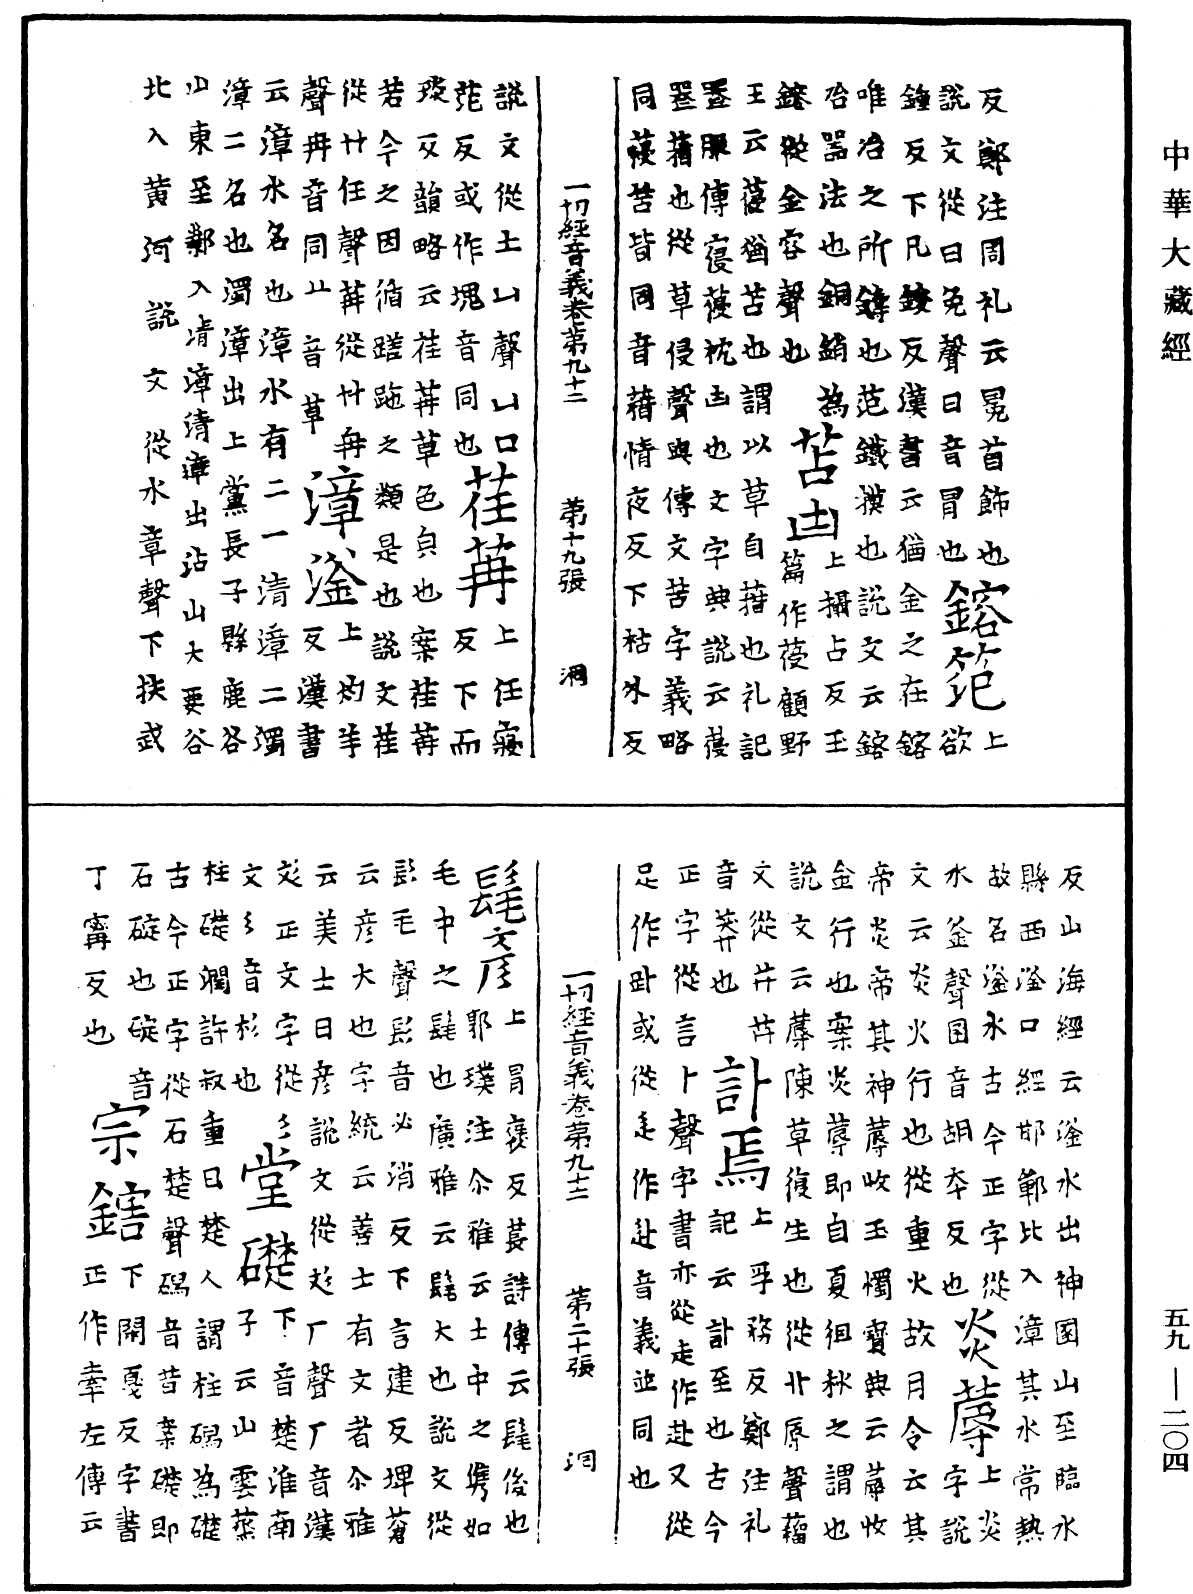 中華大藏經
反鄭注周礼云冕首飾也鎔笵上
說文從曰免聲曰音冒也欲
鍾反下凡鋄反漢書云猶金之在鎔
唯冶之所鑄也范鐵模也說文云鎔
冶器法也銅銷為上攝占反玉
鎔從金容聲也苫凷篇作葠顧野
王云葠猶苫也謂以草自藉也礼記
同葠苫皆同音藉情夜反下枯外反
一切經音義卷第九十二 第十九張 洞
說文從土凵聲凵口荏苒上任寢
范反或作塊音同也反下而
琰反韻略云荏苒草色皃也案荏苒
若今之因循蹉跎之類是也說文荏
從廾任聲苒從廾冉上灼羊
聲冉音同上音草漳滏反漢書
云漳水名也漳水有二一清漳二濁
漳二名也濁漳出上黨長子縣鹿谷
山東至鄴入清漳清漳出沾山大要谷
北入黄河說文從水章聲下扶武
反山海經云滏水出神囷山至臨水
縣西滏口經邯鄲北入漳其水常熱
故名滏水古今正字從炎蓐上炎
水釜聲囷音胡夲反也字說
文云炎火行也從重火故月令云其
帝炎帝其神蓐收玉燭寶典云蓐收
金行也案炎蓐即自夏徂秋之謂也
說文云蓐陳草復生也從艹辱聲蘊
文從茻茻訃焉上孚務反鄭注礼
音莽也記云訃至也古今
正字從言卜聲字書亦從走作赴又從
足作䟔或從辵作赴音義並同也
一切經音義卷第九十二 第二十張 洞
髦彥上冒襃反萇詩傳云髦俊也
郭璞注尒雅云士中之儁如
毛中之髦也廣雅云髦大也說文從
髟毛聲髟音必消反下言建反埤蒼
云彥大也字統云善士有文者尒雅
云美士曰彥說文從彣厂聲厂音漢
彣正文字從彡堂礎下音楚淮南
文彡音杉也子云山雲蒸
柱礎潤許叔重曰楚人謂柱碣為礎
古今正字從石楚聲碣音昔案礎即
石碇也碇音宗鎋下閑戛反字書
丁寗反也正作舝左傳云
五九—二〇四